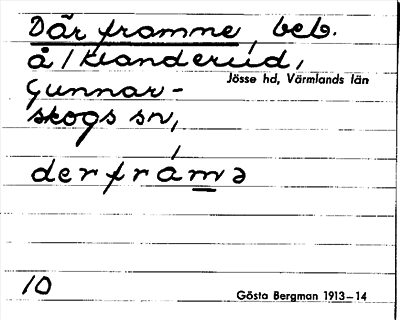 Där framme, beb.
å /Klanderud,
Jösse hd, Värmlands län
Gunnar-
skogs sn,
derfrámə
10
Gösta Bergman 1913–14